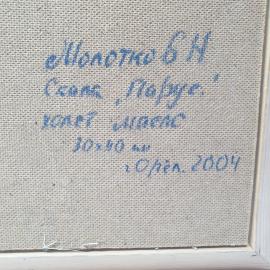 Молотков Н
Скала „Парус."
холст масло
30×40 см
г Орёл. 2004